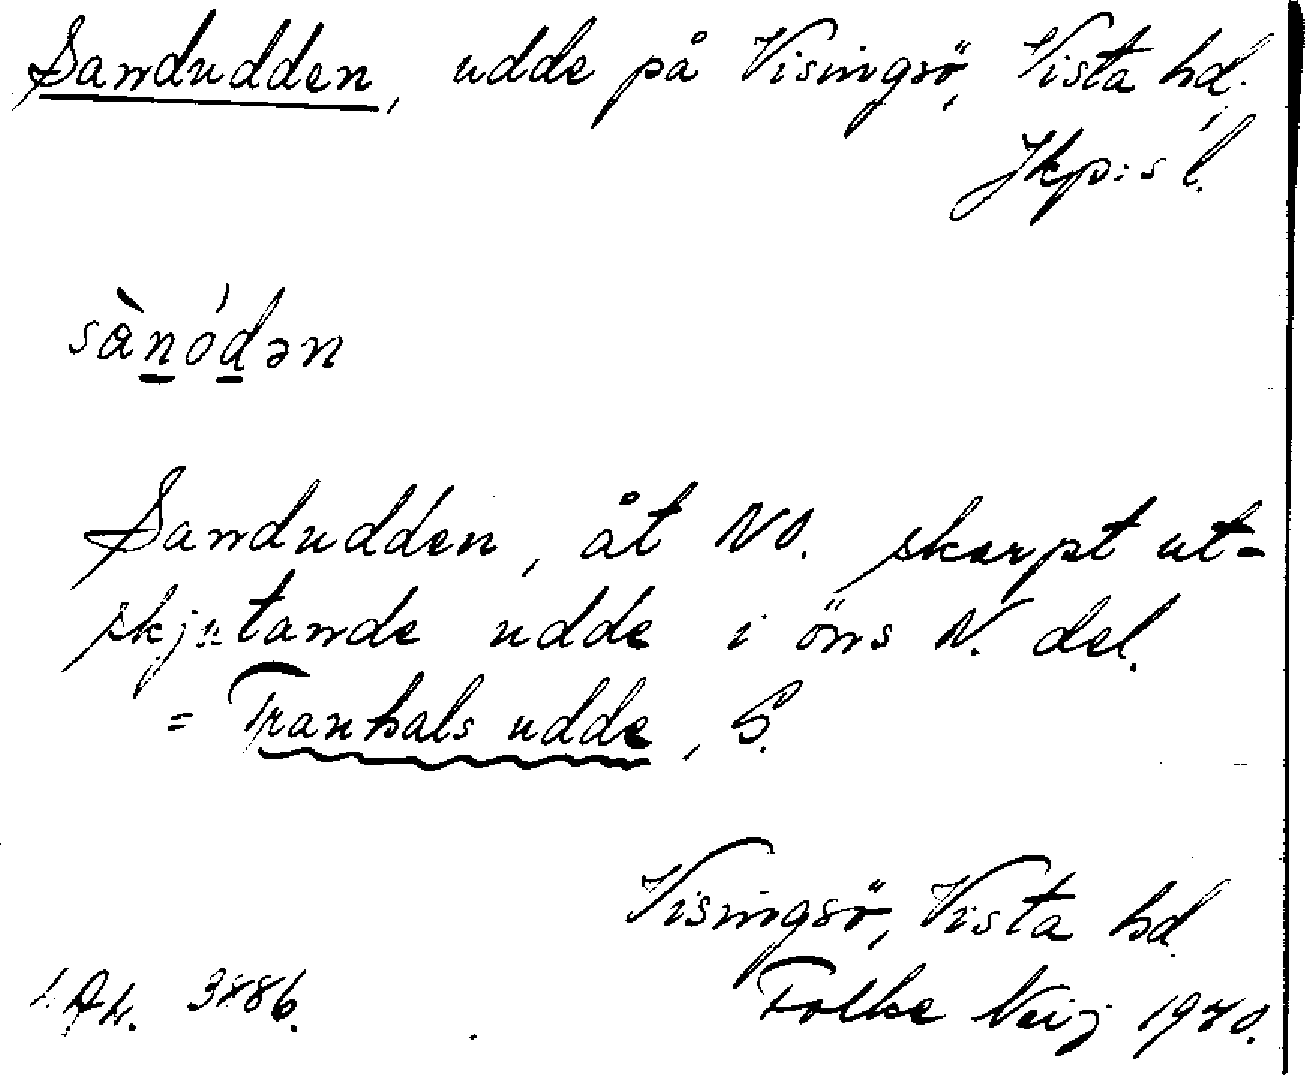 Sandudden, udde på Visingsö, Vista hd,
Jkp:s l.
sànódən
Sandudden, åt NO. skarpt ut-
skjutande udde i öns N. del.
= Tranhals udde, S.
Visingsö, Vista hd
Folke Neij 1940.
3886.